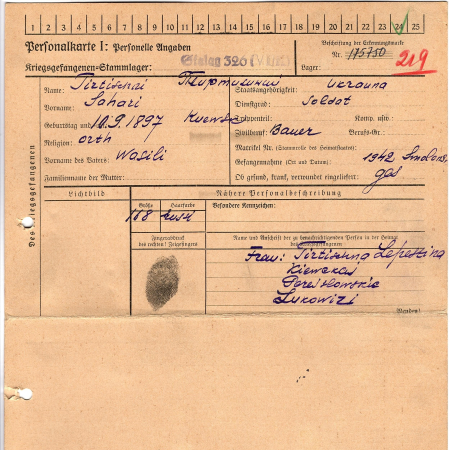 1 2 3 4 5 6 7 8 9 10 11 12 13 14 15 16 17 18 19 20 21 22 23 24 25
Personalkarte I: Personelle Angaben
Beschriftung der Erkennungsmarke
Nr. 175750
219
Kriegsgefangenen-Stammlager: Stalag 326
Lager:
Des Kriegsgefangenen
Name: Tirtischni
Staatsangehörigkeit: Ukraina
Vorname: Sahari
Dienstgrad: Soldat
Geburtstag und 10.9.1897
Truppenteil: Komp. usw.:
Religion: orth
Zivilberuf: Bauer Berufs-Gr.:
Vorname des Vaters: Wasili
Matrikel Nr. (Stammrolle des Heimatstaates):
Gefangennahme (Ort und Datum): 1942 Smolens.
Familienname der Mutter:
Ob gesund, krank, verwundet eingeliefert: ges
Lichtbild
Nähere Personalbeschreibung
Größe Haarfarbe
Besondere Kennzeichen:
168
Fingerabdruck
des rechten! Zeigefingers
Name und Anschrift der zu benachrichtigenden Person in der Heimat
des Kriegsgefangenen
Frau:
Kiewskaj
Lukowizi
Wenden!